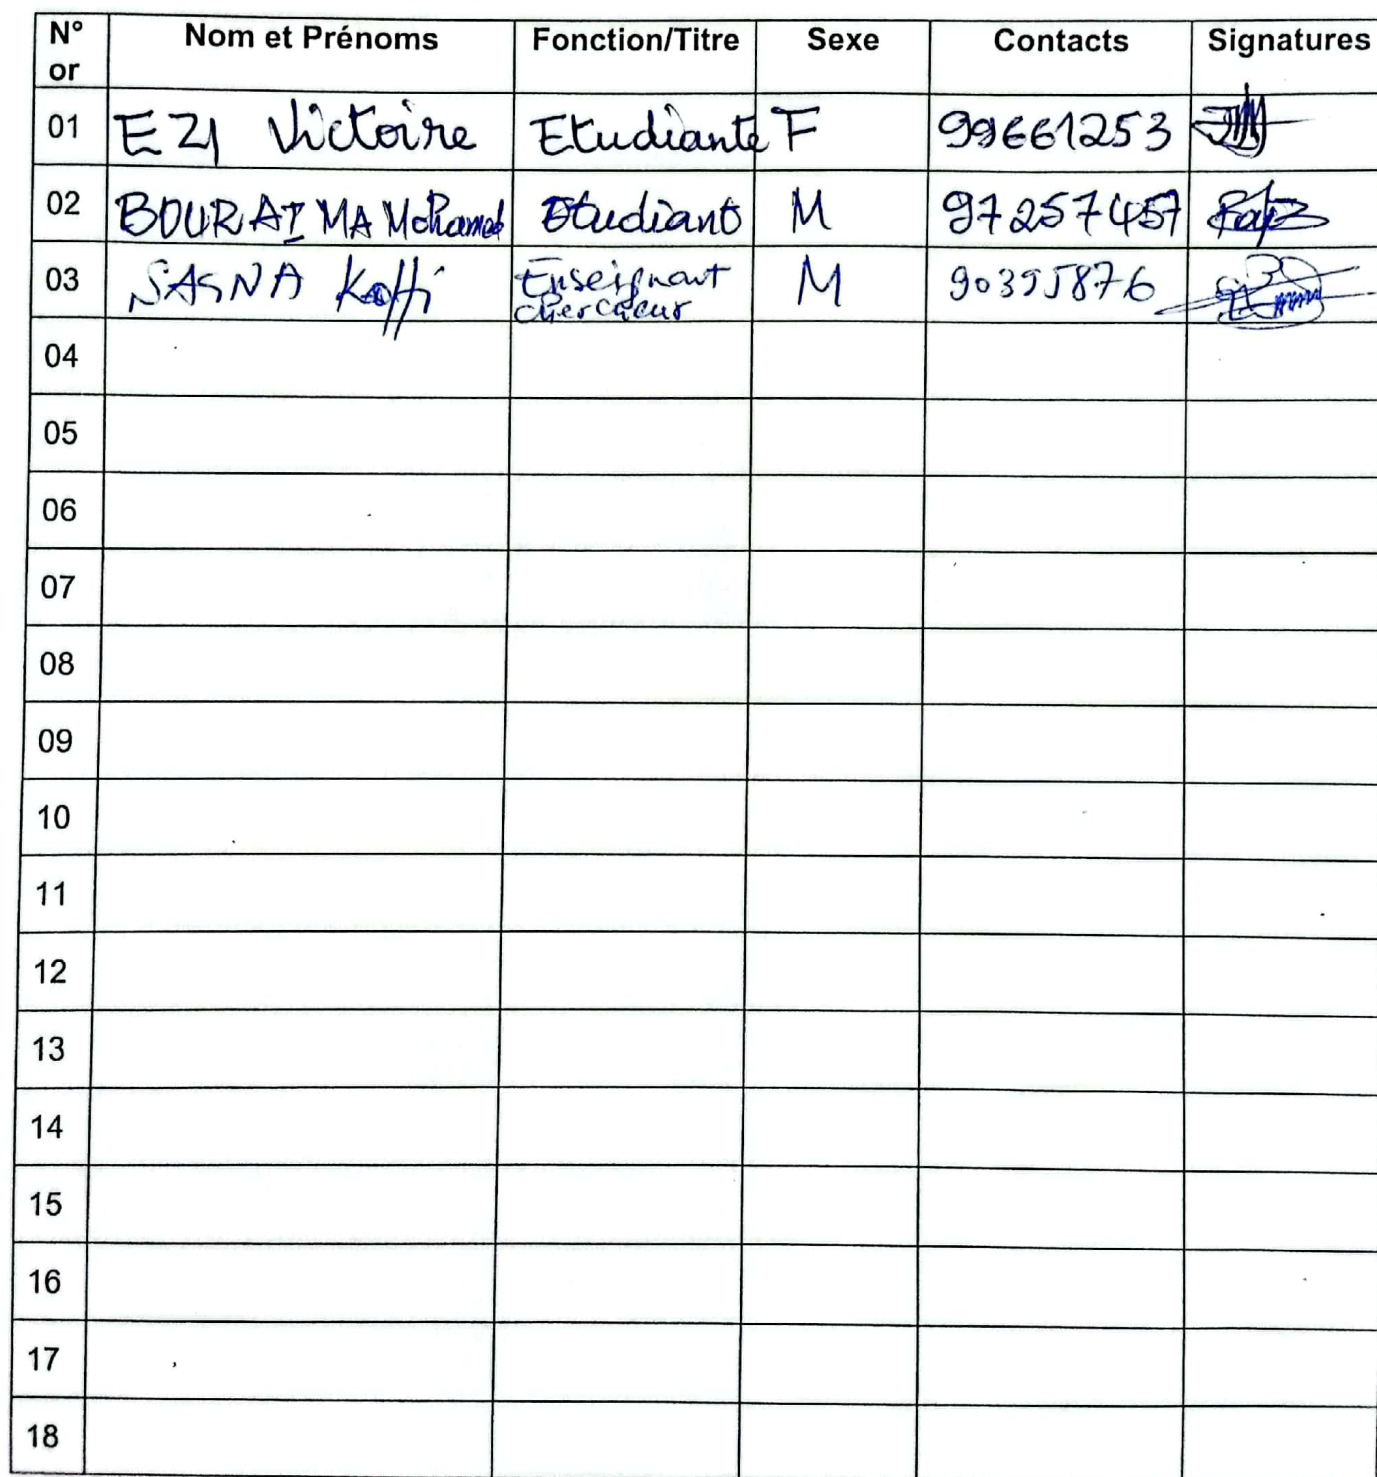 N° or Nom et Prénoms Fonction/Titre Sexe Contacts Signatures
01 EZI Victoire Etudiante F 99661253
02 BOURAIMA Mohamed Etudiant M 97257457
03 SAGNA Koffi Enseignant chercheur M 90395876
04
05
06
07
08
09
10
11
12
13
14
15
16
17
18